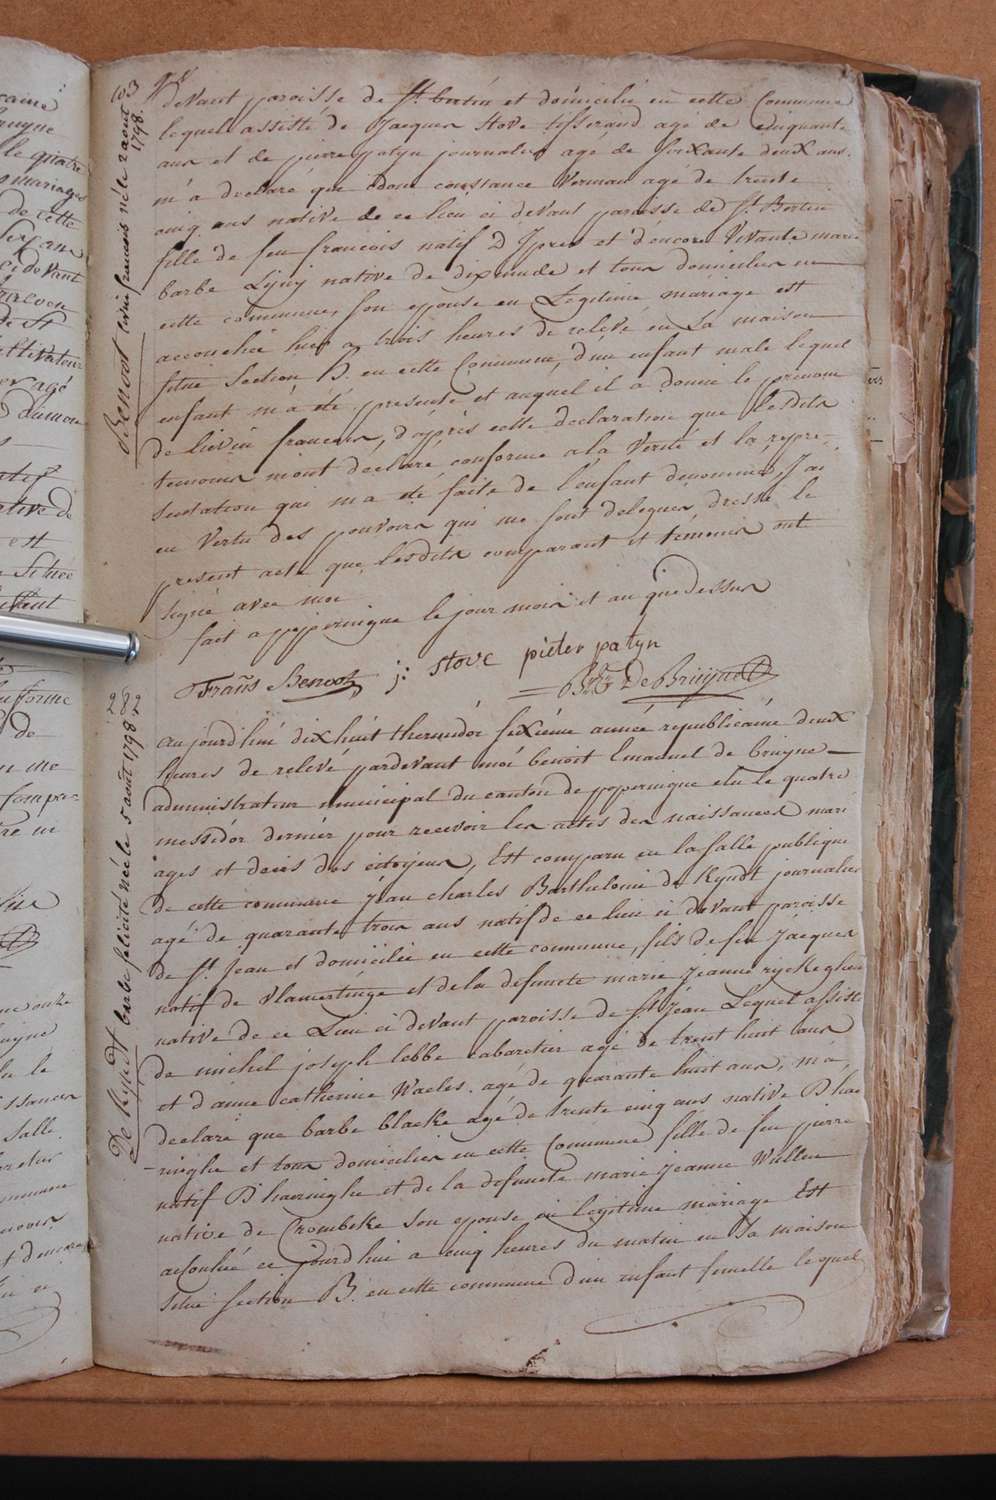 103
devant paroisse de St. bertin et domicilié en cette Commune
lequel assisté de Jacques Stove tisserand agé de Cinquante
ans et de pierre patyn journalier agé de soixante deux ans.
m'a declaré que idonc constance Verman agé de trente
cinq ans native de ce lieu ci devant paroisse de St. Bertin
fille de feu francois natif D Ypres et d'encore Vivante marie
barbe Lyny native de dixmude et tous domiciliés en
cette commune, son epouse en Legitime mariage est
accouchée hier a trois heures de relevé en sa maison
situé Section B. en cette Commune, d'un enfant male lequel
enfant m'a eté presenté et auquel il a donné le prenom
de livin francois, d'après cette declaration que lesdits
temoins m'ont declaré conforme a la Verité et la repre-
sentation qui m'a eté faite de l'enfant denommé, J'ai
en Vertu des pouvoirs qui me sont delegués, dressé le
present acte que lesdits comparant et témoins ont
signé avec moi
fait a poperingue le jour mois et an que dessus
Frañs Benoot j: stove pieter patyn
DeBruyne
de Benoot livin francois né le 2 aout
1798.
282
2
au jourd'hui dix huit thermidor sixieme année républicaine deux
heures de relevé pardevant moi benoit Emanuel de bruyne
administrateur municipal du canton de poperingue elu le quatre
messidor dernier pour recevoir les actes des naissances mari
ages et decès des citoyens, Est comparu en la salle publique
de cette commune Jean charles Barthelomi de Kyndt journalier
agé de quarante trois ans natif de ce lieu ci devant paroisse
de St. Jean et domiciliée en cette commune, fils de feu Jacques
natif de Vlamertinge et de la defuncte marie jeanne ryckeghem
native de ce Lieu ci devant paroisse de St Jean Lequel assisté
de michel joseph lebbe cabaretier agé de trent huit ans
et d'anne catherine Waeles. agé de quarante huit ans, m'a
declaré que barbe blacke agé de trente cinq ans native D hae
-ringhe et tous domiciliés en cette Commune fille de feu pierre
natif D haeringhe et de la defuncte marie jeanne Wullen
native de Crombeke son epouse en legitime mariage Est
accouchée ce jourd'hui a cinq heures du matin en Sa maison
situé section B. en cette commune d'un enfant femelle lequel
De Kyndt barbe félicité née le 5 aout 1798